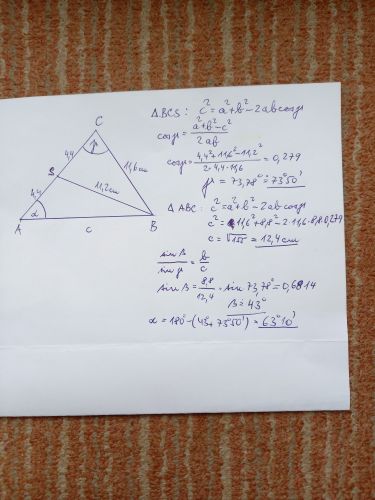 C
4,4
γ
11,6cm
S
4,4
11,2cm
α
A
c
B
△BCS: c² = a² + b² - 2ab cosγ
cosγ = (a² + b² - c²)/(2ab)
cosγ = (4,4² + 11,6² - 11,2²)/(2·4,4·11,6) = 0,279
γ = 73,78° = 73°50'
△ABC: c² = a² + b² - 2ab cosγ
c² = 11,6² + 8,8² - 2·11,6·8,8·0,279
c = √155 = 12,4cm
sin β / sin γ = b/c
sin β = 8,8/12,4 · sin 73,78° = 0,6814
β = 43°
α = 180° - (43° + 73°50') = 63°10'